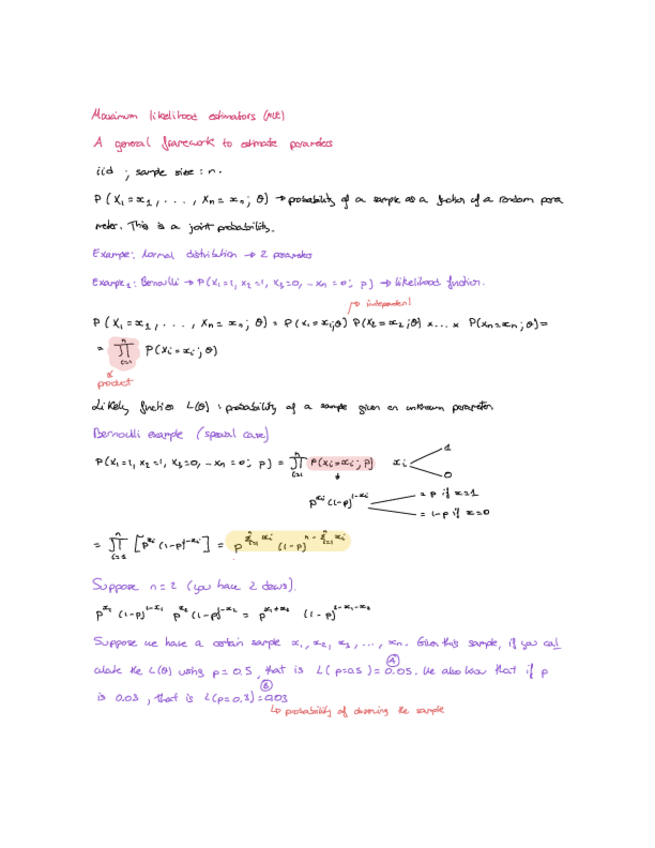 Maximum likelihood estimators (MLE)
A general framework to estimate parameters
iid ; sample size : n.
P(X₁ = x₁, ..., Xₙ = xₙ; θ) → probability of a sample as a function of a random para
meter. This is a joint probability.
Example: normal distribution → 2 parameters
Example₂: Bernoulli → P(X₁=1, X₂=1, X₃=0, ... Xₙ=0; p) → likelihood function.
→ independent
P(X₁ = x₁, ..., Xₙ = xₙ; θ) = P(X₁ = x₁;θ) P(X₂ = x₂;θ) x ... x P(Xₙ = xₙ;θ) =
= ∏ᵢ₌₁ⁿ P(Xᵢ = xᵢ; θ)
product
Likely function L(θ) : probability of a sample given an unknown parameter.
Bernoulli example (special case)
P(X₁=1, X₂=1, X₃=0, ... Xₙ=0; p) = ∏ᵢ₌₁ⁿ P(Xᵢ = xᵢ; p) xᵢ 1
0
p^xᵢ (1-p)^1-xᵢ = p if x=1
= 1-p if x=0
= ∏ᵢ₌₁ⁿ [p^xᵢ (1-p)^1-xᵢ] = p^Σᵢ₌₁ⁿ xᵢ (1-p)^n - Σᵢ₌₁ⁿ xᵢ
Suppose n=2 (you have 2 draws).
p^x₁ (1-p)^1-x₁ p^x₂ (1-p)^1-x₂ = p^x₁+x₂ (1-p)^2-x₁-x₂
Suppose we have a certain sample x₁, x₂, x₃, ..., xₙ. Given this sample, if you cal
culate the L(θ) using p = 0.5, that is L(p=0.5) = 0.05. We also know that if p
A
is 0.03, that is L(p=0.3) = 0.03
B
↳ probability of observing the sample